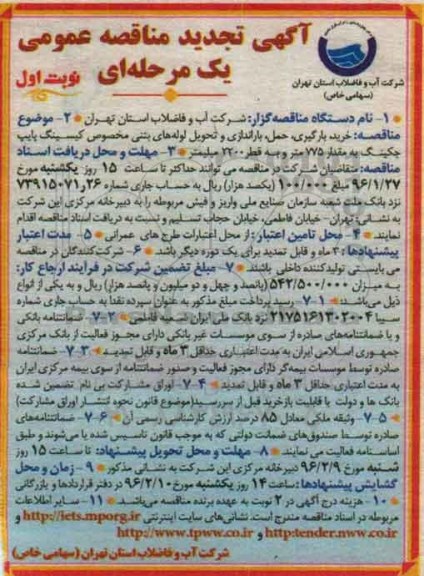 آگهی تجدید مناقصه عمومی
یک مرحله‌ای
نوبت اول
شرکت آب و فاضلاب استان تهران
(سهامی خاص)
۱- نام دستگاه مناقصه‌گزار: شرکت آب و فاضلاب استان تهران ۲- موضوع
مناقصه: خرید بارگیری، حمل، باراندازی و تحویل لوله‌های بتنی مخصوص کیسینگ پایپ
جکینگ به مقدار ۷۷۵ متر و به قطر ۲۲۰۰ میلیمتر ۳- مهلت و محل دریافت اسناد
مناقصه: متقاضیان شرکت در مناقصه می توانند حداکثر تا ساعت ۱۵ روز یکشنبه مورخ
۹۶/۱/۲۷ مبلغ ۱۰۰/۰۰۰ (یکصد هزار) ریال به حساب جاری شماره ۲۶و۷۳۹۱۵۰۷۱
نزد بانک ملت شعبه سازمان صنایع ملی واریز و فیش مربوطه را به دبیرخانه مرکزی این شرکت
به نشانی تهران- خیابان فاطمی، خیابان حجاب تسلیم و نسبت به دریافت اسناد مناقصه اقدام
نمایند ۴- محل تامین اعتبار: از محل اعتبارات طرح های عمرانی ۵- مدت اعتبار
پیشنهادها: ۳ ماه و قابل تمدید برای یک دوره دیگر باشد. ۶- شرکت‌کنندگان در مناقصه
می بایستی تولیدکننده داخلی باشند. ۷- مبلغ تضمین شرکت در فرایند ارجاع کار:
به میزان ۵۴۲/۵۰۰/۰۰۰ (پانصد و چهل و دو میلیون و پانصد هزار) ریال و به یکی از انواع
ذیل می‌باشد: ۱-۷- رسید پرداخت مبلغ مذکور به عنوان سپرده نقدا به حساب جاری شماره
سیبا ۲۱۷۵۱۶۱۳۰۲۰۰۴ نزد بانک ملی ایران شعبه فاطمی ۲-۷- ضمانتنامه بانکی
و یا ضمانتنامه‌های صادره از سوی موسسات غیر بانکی دارای مجوز فعالیت از بانک مرکزی
جمهوری اسلامی ایران به مدت اعتباری حداقل ۳ ماه و قابل تمدید ۳-۷- ضمانتنامه
صادره توسط موسسات بیمه‌گر دارای مجوز فعالیت و صدور ضمانتنامه از سوی بیمه مرکزی ایران
به مدت اعتباری حداقل ۳ ماه و قابل تمدید ۴-۷- اوراق مشارکت بی نام تضمین شده
بانک ها و دولت با قابلیت بازخرید قبل از سررسید (موضوع قانون نحوه انتشار اوراق مشارکت)
۵-۷- وثیقه ملکی معادل ۸۵ درصد ارزش کارشناسی رسمی آن ۶-۷- ضمانتنامه‌های
صادره توسط صندوق‌های ضمانت دولتی که به موجب قانون تاسیس شده یا می‌شوند و طبق
اساسنامه فعالیت می نمایند. ۸- مهلت و محل تحویل پیشنهاد: تا ساعت ۱۵ روز
شنبه مورخ ۹۶/۲/۹ دبیرخانه مرکزی این شرکت به نشانی مذکور ۹- زمان و محل
گشایش پیشنهادها: ساعت ۱۴ روز یکشنبه مورخ ۹۶/۲/۱۰ در دفتر قراردادها و بازرگانی
۱۰- هزینه درج آگهی در ۲ نوبت به عهده برنده مناقصه می‌باشد. ۱۱- سایر اطلاعات
مربوطه در اسناد مناقصه مندرج است. نشانی‌های سایت اینترنتی http://iets.mporg.ir و
http:tender.nww.co.ir و http://www.tpww.co.ir
شرکت آب و فاضلاب استان تهران (سهامی خاص)